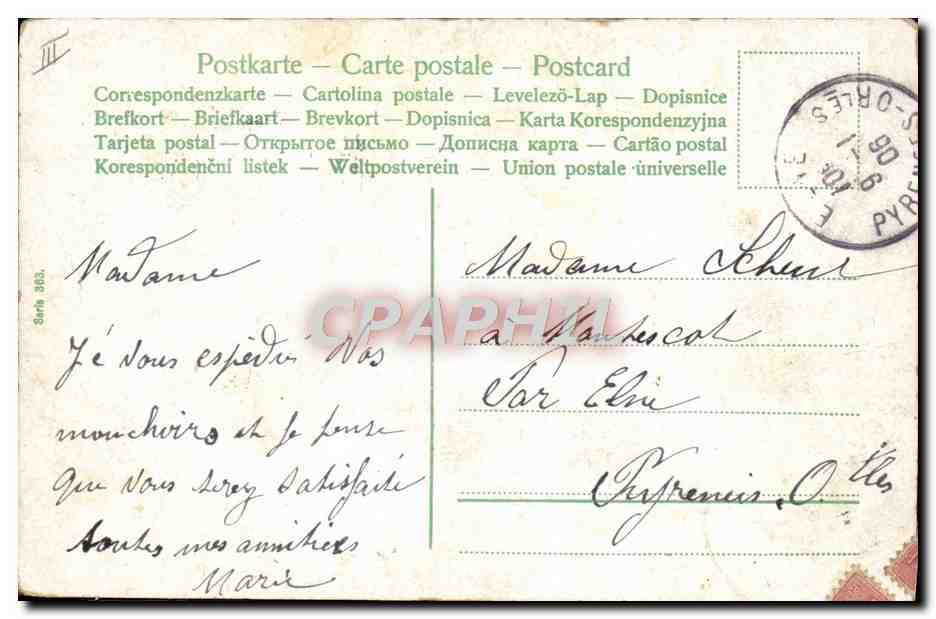 III
Postkarte – Carte postale – Postcard
Correspondenzkarte — Cartolina postale — Levelezö-Lap — Dopisnice
Brefkort — Briefkaart — Brevkort — Dopisnica — Karta Korespondenzyjna
Tarjeta postal — Открытое письмо — Дописна карта — Cartão postal
Korespondenční listek — Weltpostverein — Union postale universelle
PYRENEES-ORLES
ELNE
9
1
06
Madame
Jé vous espédié vos
mouchoirs et je pense
que vous serez satisfaite
toutes mes amitiés
Marie
Madame
à Montescot
Par Elne
Pyreneis. O. tles
Serie 363.
CPAPHIL